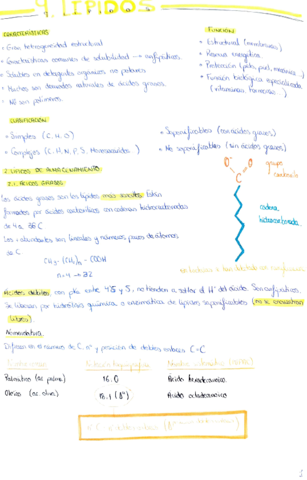 4. LÍPIDOS
CARACTERÍSTICAS
• Gran heterogeneidad estructural
• Característica comuna de solubilidad → anfipáticos
• Solubles en detergentes orgánicos no polares
• Muchos son derivados naturales de ácidos grasos
• NO son polímeros.
FUNCIÓN
• Estructural (membranas)
• Reserva energética
• Protección (
• Función biológica especializada
(vitaminas, hormonas ...)
CLASIFICACIÓN
• Simples (C, H, O)
• Complejos (C, H, N, P, S, Monosacáridos)
• Saponificables (con ácidos grasos)
• No saponificables (sin ácidos grasos)
2. LÍPIDOS DE ALMACENAMIENTO
2.1. ÁCIDOS GRASOS
Los ácidos grasos son los lípidos más sencillos. Están
formados por ácidos carboxílicos con cadenas hidrocarbonadas
de 4 a 36 C
Los + abundantes son lineales y números pares de átomos
de C
CH3 - (CH2)n - COOH
O⁻ O
C
grupo
carboxilo
cadena
hidrocarbonada
Ácidos débiles con pKa entre 4,5 y 5, no tienden a soltar el H⁺ del ácido. Son anfipáticos.
Se liberan por hidrólisis química o enzimática de lípidos saponificables (no se encuentran
libres)
Nomenclatura
Difieren en el número de C, nº y posición de dobles enlaces C-C
Palmítico (ac. palma) 16:0 Ácido hexadecanoico
Oleico (ac. oliva) 18:1 (Δ⁹) Ácido octadecenoico